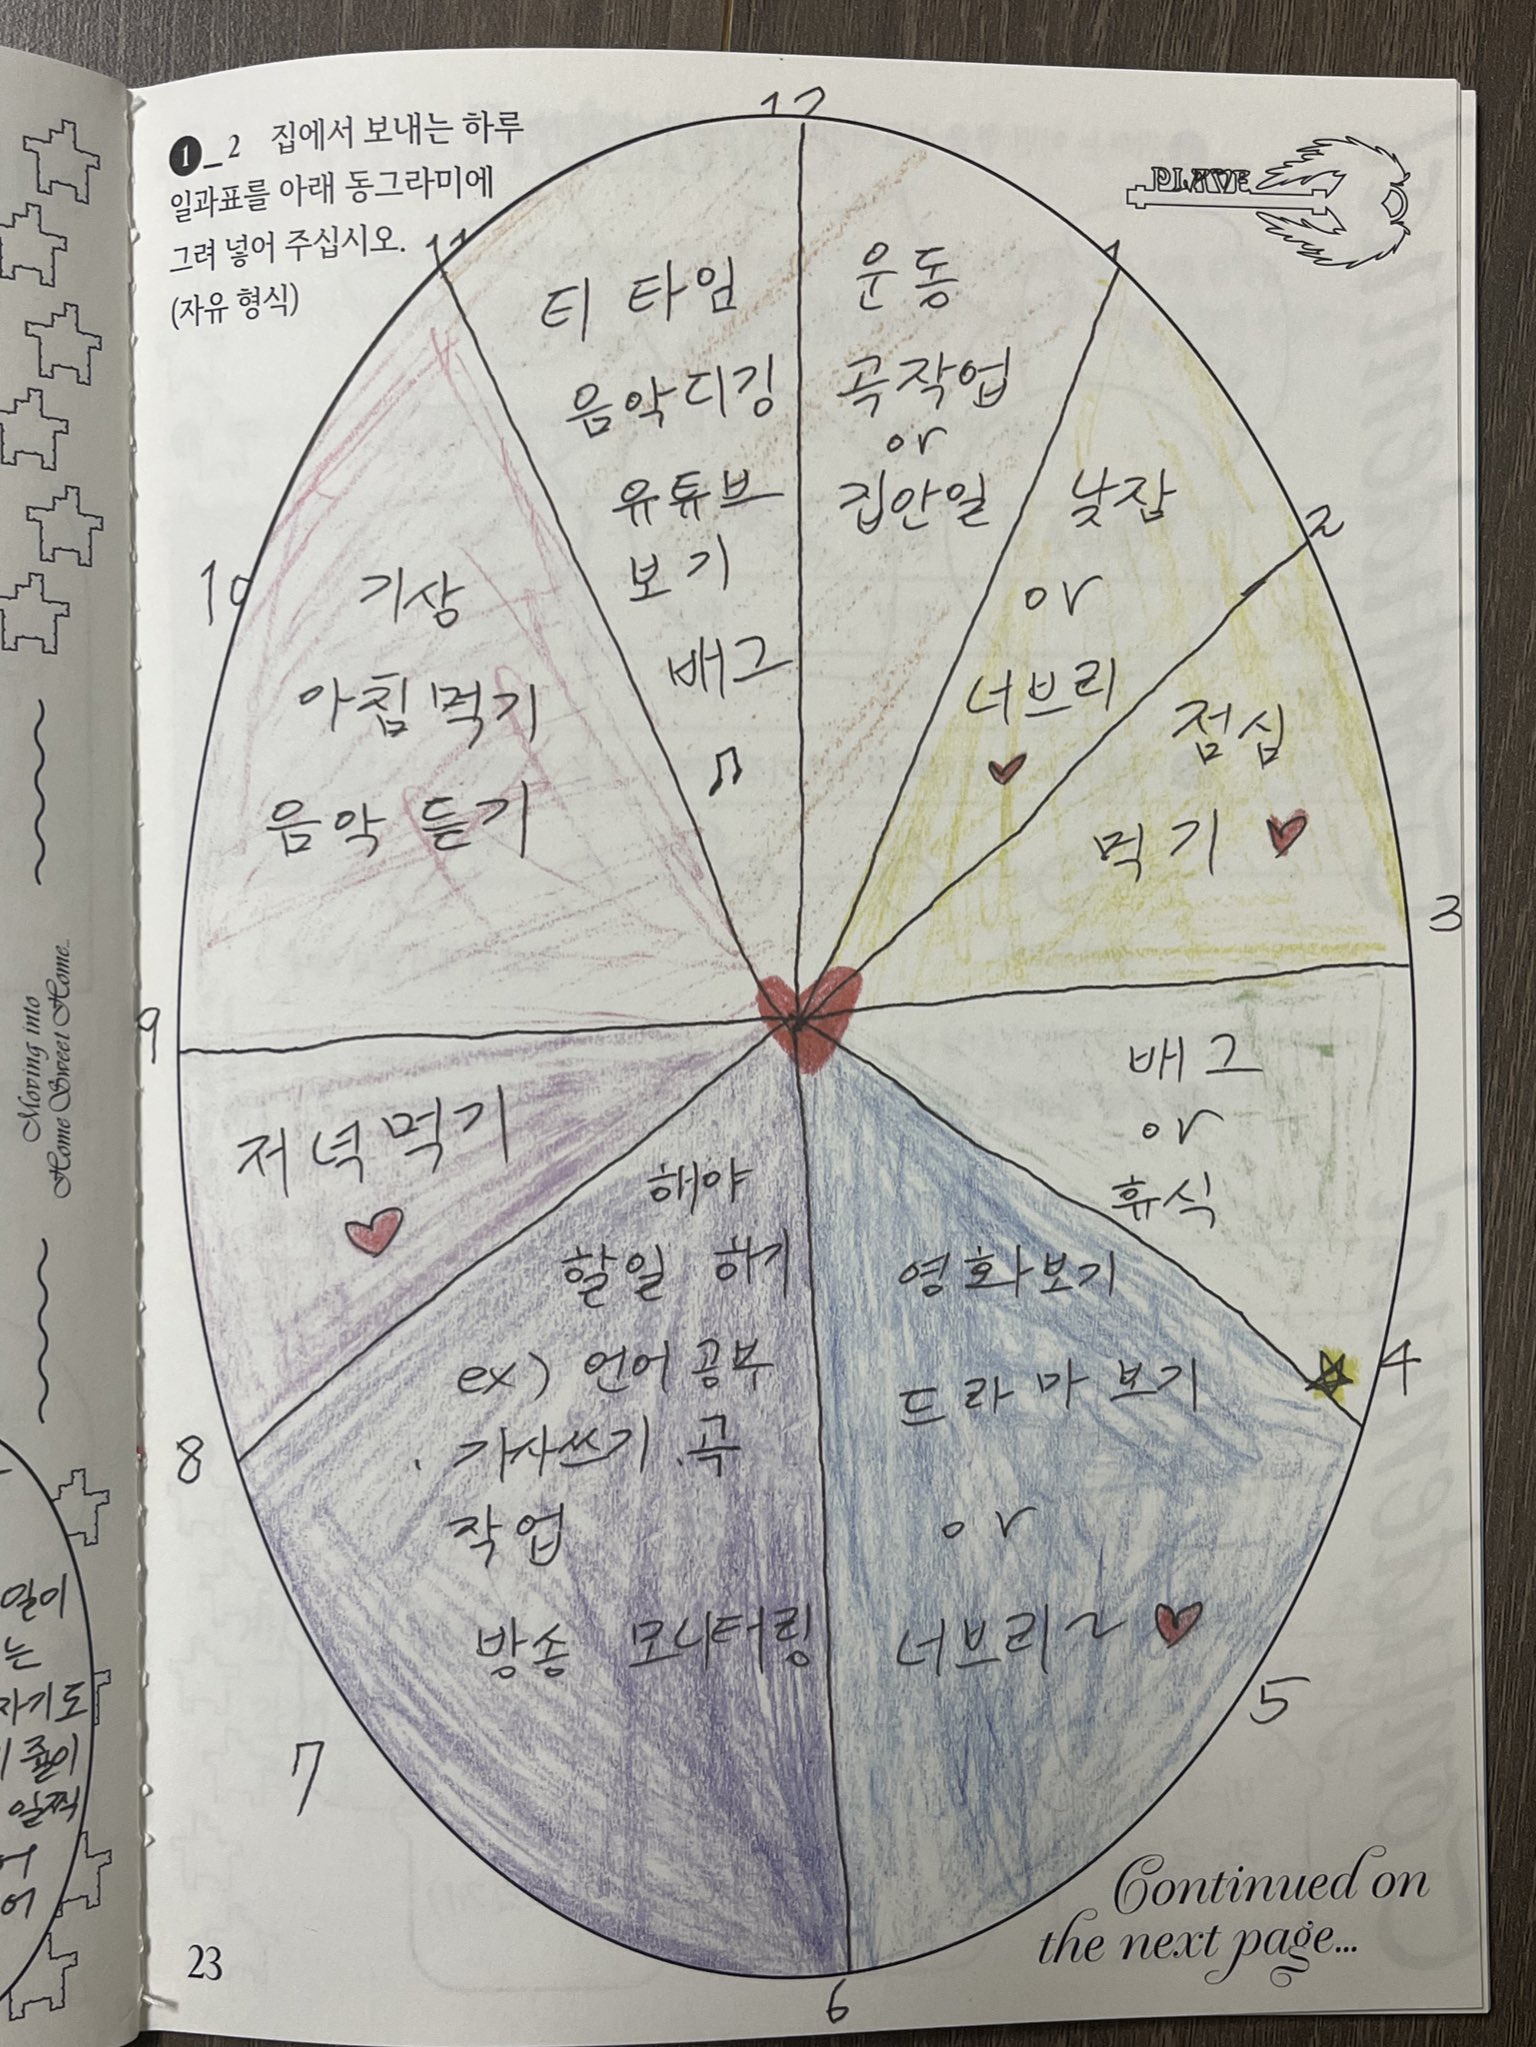 ❶_2 집에서 보내는 하루
일과표를 아래 동그라미에
그려 넣어 주십시오.
(자유 형식)
PLAVE
12
운동
곡작업
or
집안일
1
낮잠
or
너브리
2
점심
먹기
3
배그
or
휴식
4
영화보기
드라마 보기
or
너브리~
5
6
해야
할일 하기
ex) 언어 공부
. 가사쓰기 . 곡
작업
방송 모니터링
7
8
저녁먹기
9
기상
아침 먹기
음악 듣기
10
11
티 타임
음악디깅
유튜브
보기
배그
Continued on
the next page...
23
Moving into
Home Sweet Home...
일이
는
자기도
줄이
일찍
어
어